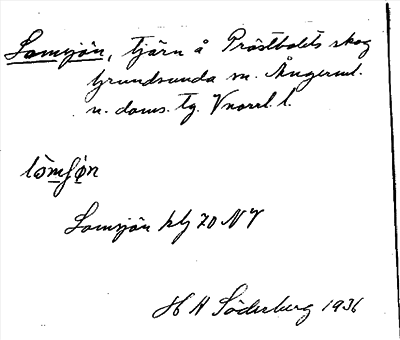 Lomsjön, tjärn å Prästbolets skog
Grundsunda sn. Ångerml.
n. doms. tg. Vnorrl. l.
lòmʃø̀n
Lomsjön kbl 70 NV
H A Söderberg 1936